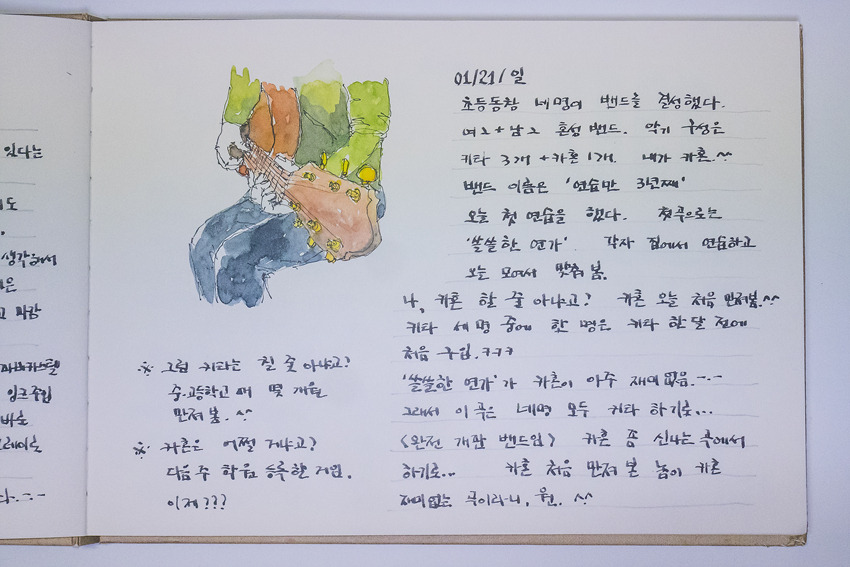 있다는
도
생각해서
은
고 마감
파버카스텔
잉크 주입
바로
01/21/일
초등동창 네명이 밴드를 결성했다.
여2+남2 혼성 밴드. 악기 구성은
키타 3개 +카혼 1개. 내가 카혼.^^
밴드 이름은 '연습만 3년째'
오늘 첫 연습을 했다. 첫곡으로는
'쓸쓸한 연가'. 각자 집에서 연습하고
오늘 모여서 맞춰 봄.
나, 카혼 할 줄 아냐고? 카혼 오늘 처음 만져봄.^^
키타 세 명 중에 한 명은 키타 한달 전에
처음 구입.ㅋㅋㅋ
'쓸쓸한 연가'가 카혼이 아주 재미없음.-.-
그래서 이 곡은 네명 모두 키타 하기로...
<완전 개판 밴드임> 카혼 좀 신나는 곡에서
하기로... 카혼 처음 만져 본 놈이 카혼
재미없는 곡이라니, 원. ^^
※ 그럼 키타는 칠 줄 아냐고?
중.고등학교 때 몇 개월
만져 봄. ^^
※ 카혼은 어쩔 거냐고?
다음 주 학원 등록할 거임.
이제???